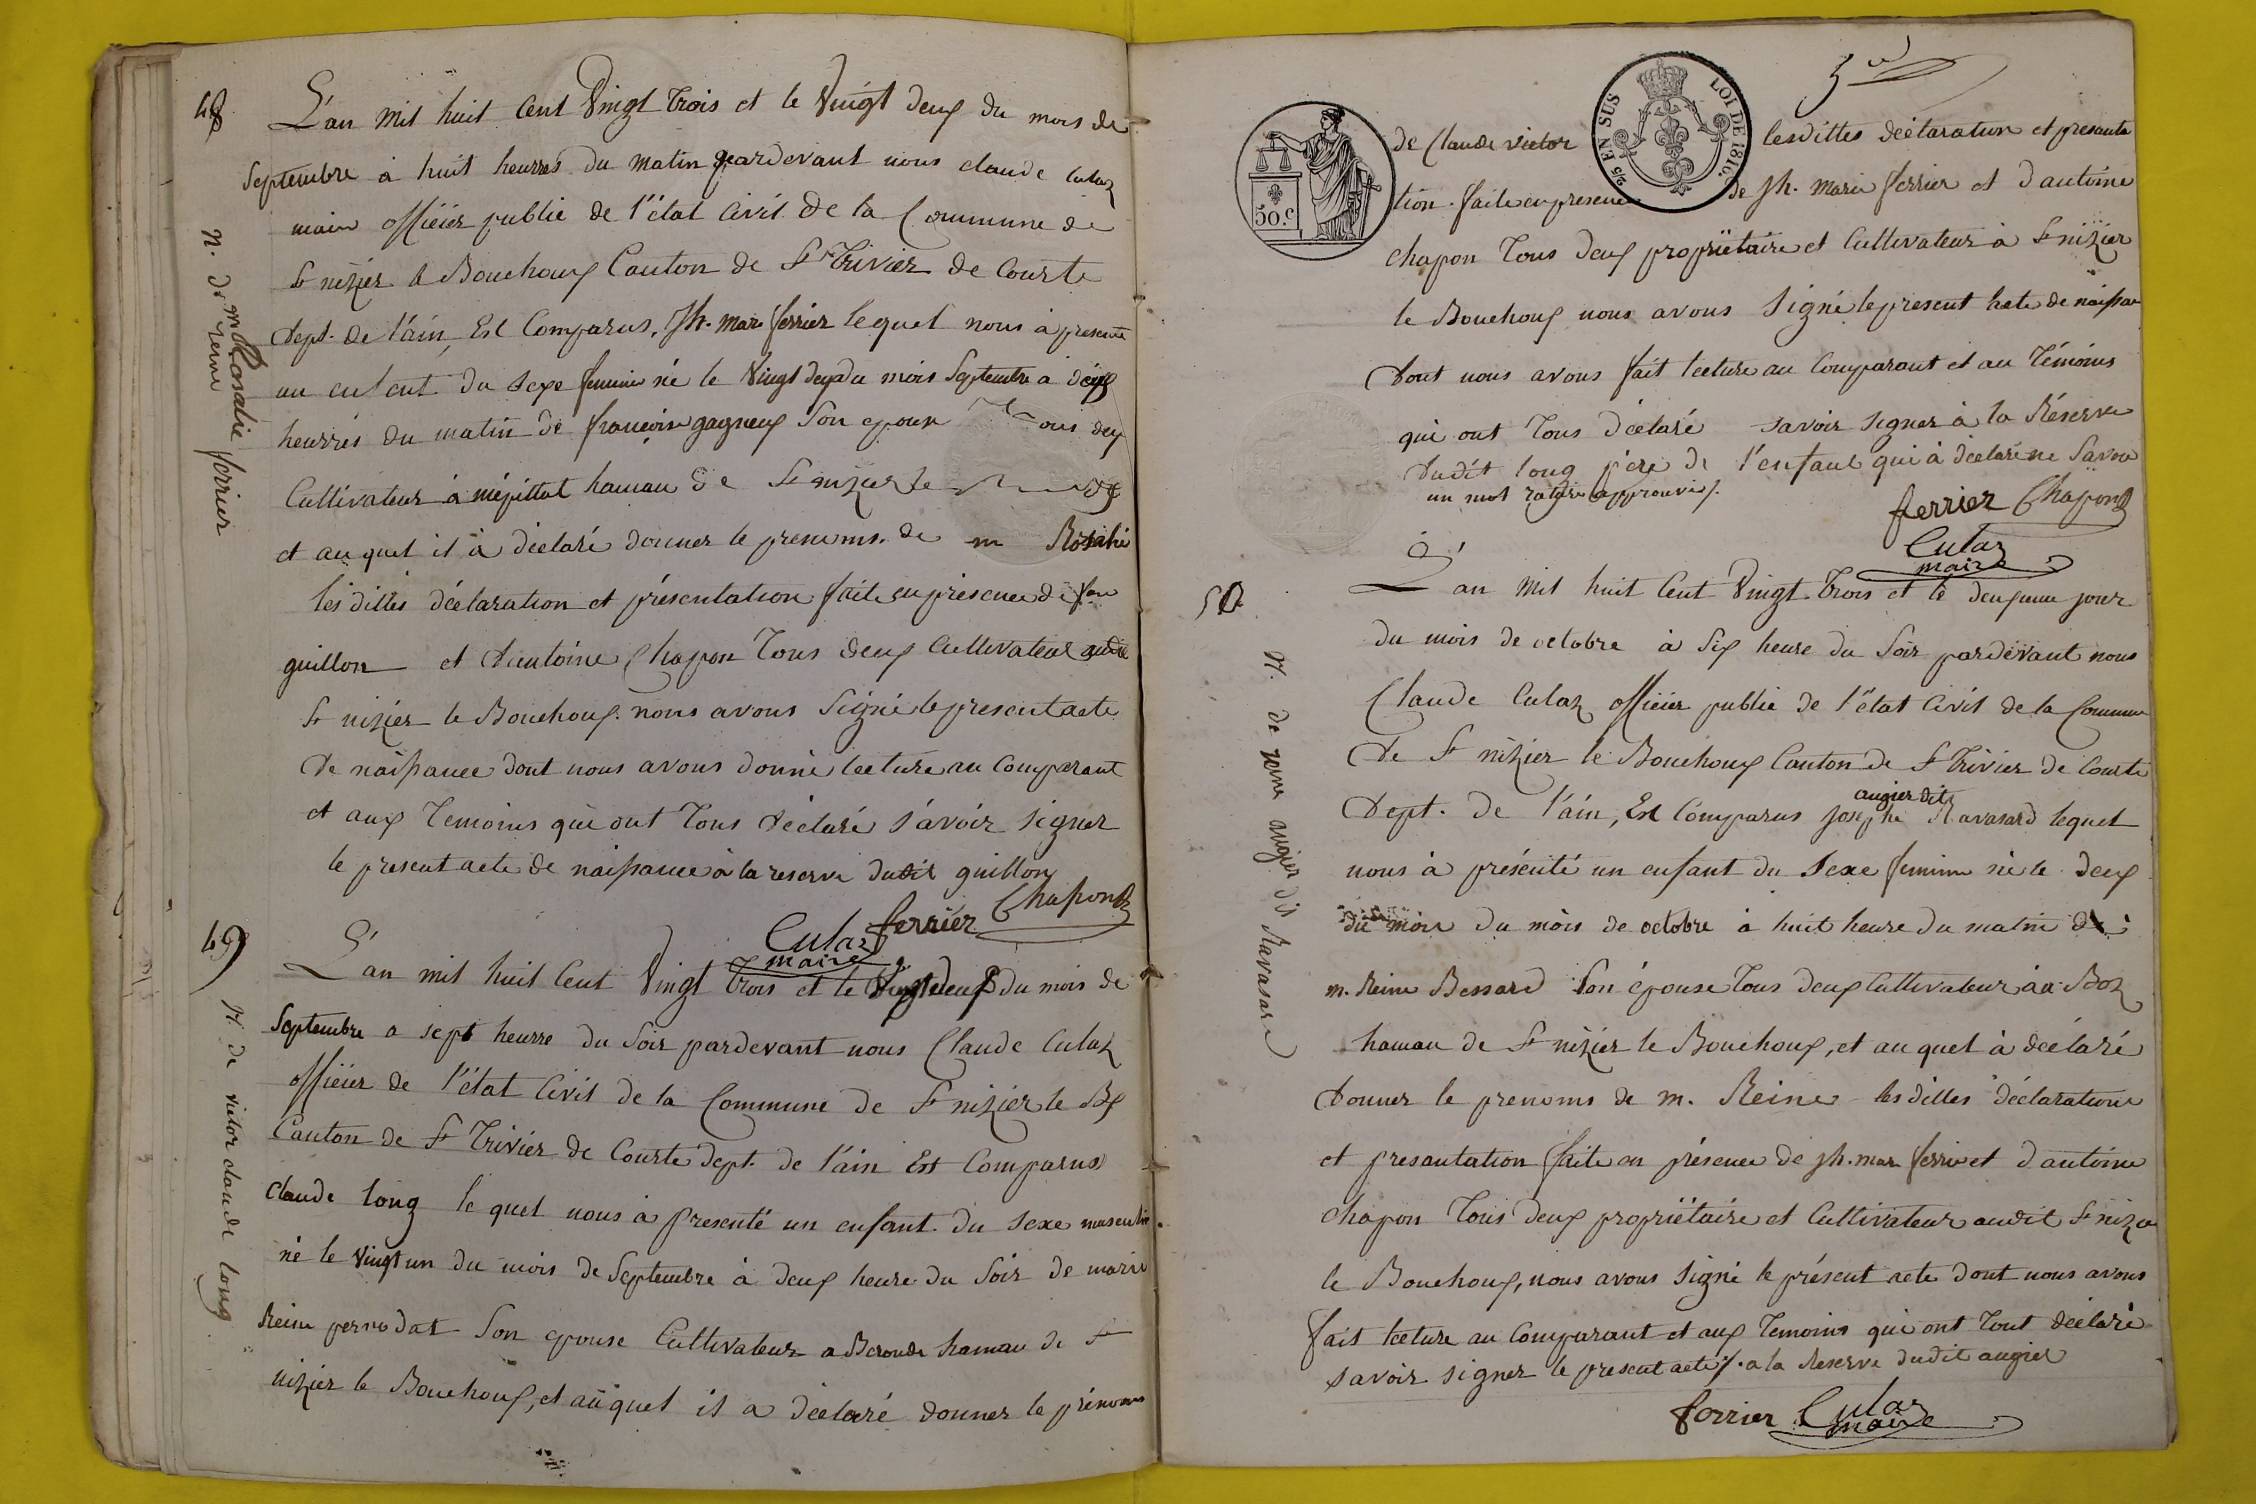 48
L'an mil huit cent vingt trois et le vingt deux du mois de
Septembre à huit heurres du matin pardevant nous claude Culaz
maire officier public de l'état civil de la Commune de
St nizier le Bouchoux Canton de St Trivier de Courte
Dept. de l'ain, Est Comparus, Jh. mar ferrier lequel nous à presenté
un enfent du Sexe feminin né le vingt deux du mois Septembre à
heurres du matin de françoise gagneux Son epouse deux
Cultivateur à mépillat hamau de St nizier le
et au quel il à déclaré donner le prenoms. de m Rosalie
les dittes déclaration et présentation faite en présence de
guillon et d'antoine Chapon Tous deux Cultivateur audit
St nizier le Bouchoux. nous avons Signé le present acte
de naissance dont nous avons donné lecture au Comparant
et aux Temoins qui ont Tous déclaré s'avoir signer
le present acte de naissance à la reserve dudit guillon
Chapon
ferrier
Culaz
maire
N. de m Rosalie ferrier
49
L'an mil huit Cent Vingt Trois et le Vingt deux du mois de
Septembre a sept heurre du Soir pardevant nous Claude Culaz
officier de l'état Civil de la Commune de St nizier le Bx
Canton de St Trivier de Courte dept. de l'ain Est Comparus
Claude long le quel nous à presenté un enfant. du Sexe masculin
né le vingt un du mois de Septembre à deux heure du Soir de marie
Reine pernodat Son epouse Cultivateur a Beronde hamau de St
nizier le Bouchoux, et auquel il a déclaré donner le prénoms
N. de victor claude long
50.c
2/5 EN SUS
LOI DE 1816.
de Claude victor lesdittes déclaration et presanta
tion. faite en presence de Jh. marie ferrier et d'antoine
Chapon Tous deux propriëtaire et Cultivateur à St nizier
le Bouchoux nous avons Signé le present hacte de naissan
dont nous avons fait lecture au Comparant et au Témoins
qui ont Tous déclaré savoir signer à la Réserve
dudit long père de l'enfant qui à déclaré ne Savoir
un mot raturé approuvé
ferrier Chapon
Culaz
maire
50
L'an mil huit Cent Vingt Trois et le deuxieme jour
du mois de octobre à Six heure du Soir pardevant nous
Claude Culaz officier public de l'état Civil de la Commune
de St nizier le Bouchoux Canton de St Trivier de Courte
augier dit
Dept. de l'ain, Est Comparus josephe Ravasard lequel
nous à présenté un enfant du Sexe feminin né le deux
du mois du mois de octobre à huit heure du matin de
m. Reine Bessard Son épouse Tous deux Cultivateur à Boz
hamau de St nizier le Bouchoux, et au quel à déclaré
donner le prenoms de m. Reine les dittes déclaration
et presantation faite en présence de jh. mar ferrier et d'antoine
Chapon Tous deux propriëtaire et Cultivateur audit St nizier
le Bouchoux, nous avons Signé le présent acte dont nous avons
fait lecture au Comparant et aux Temoins qui ont Tout déclaré
savoir signer le present acte. a la Reserve dudit augier
ferrier Culaz
maire
augier dit Ravasard